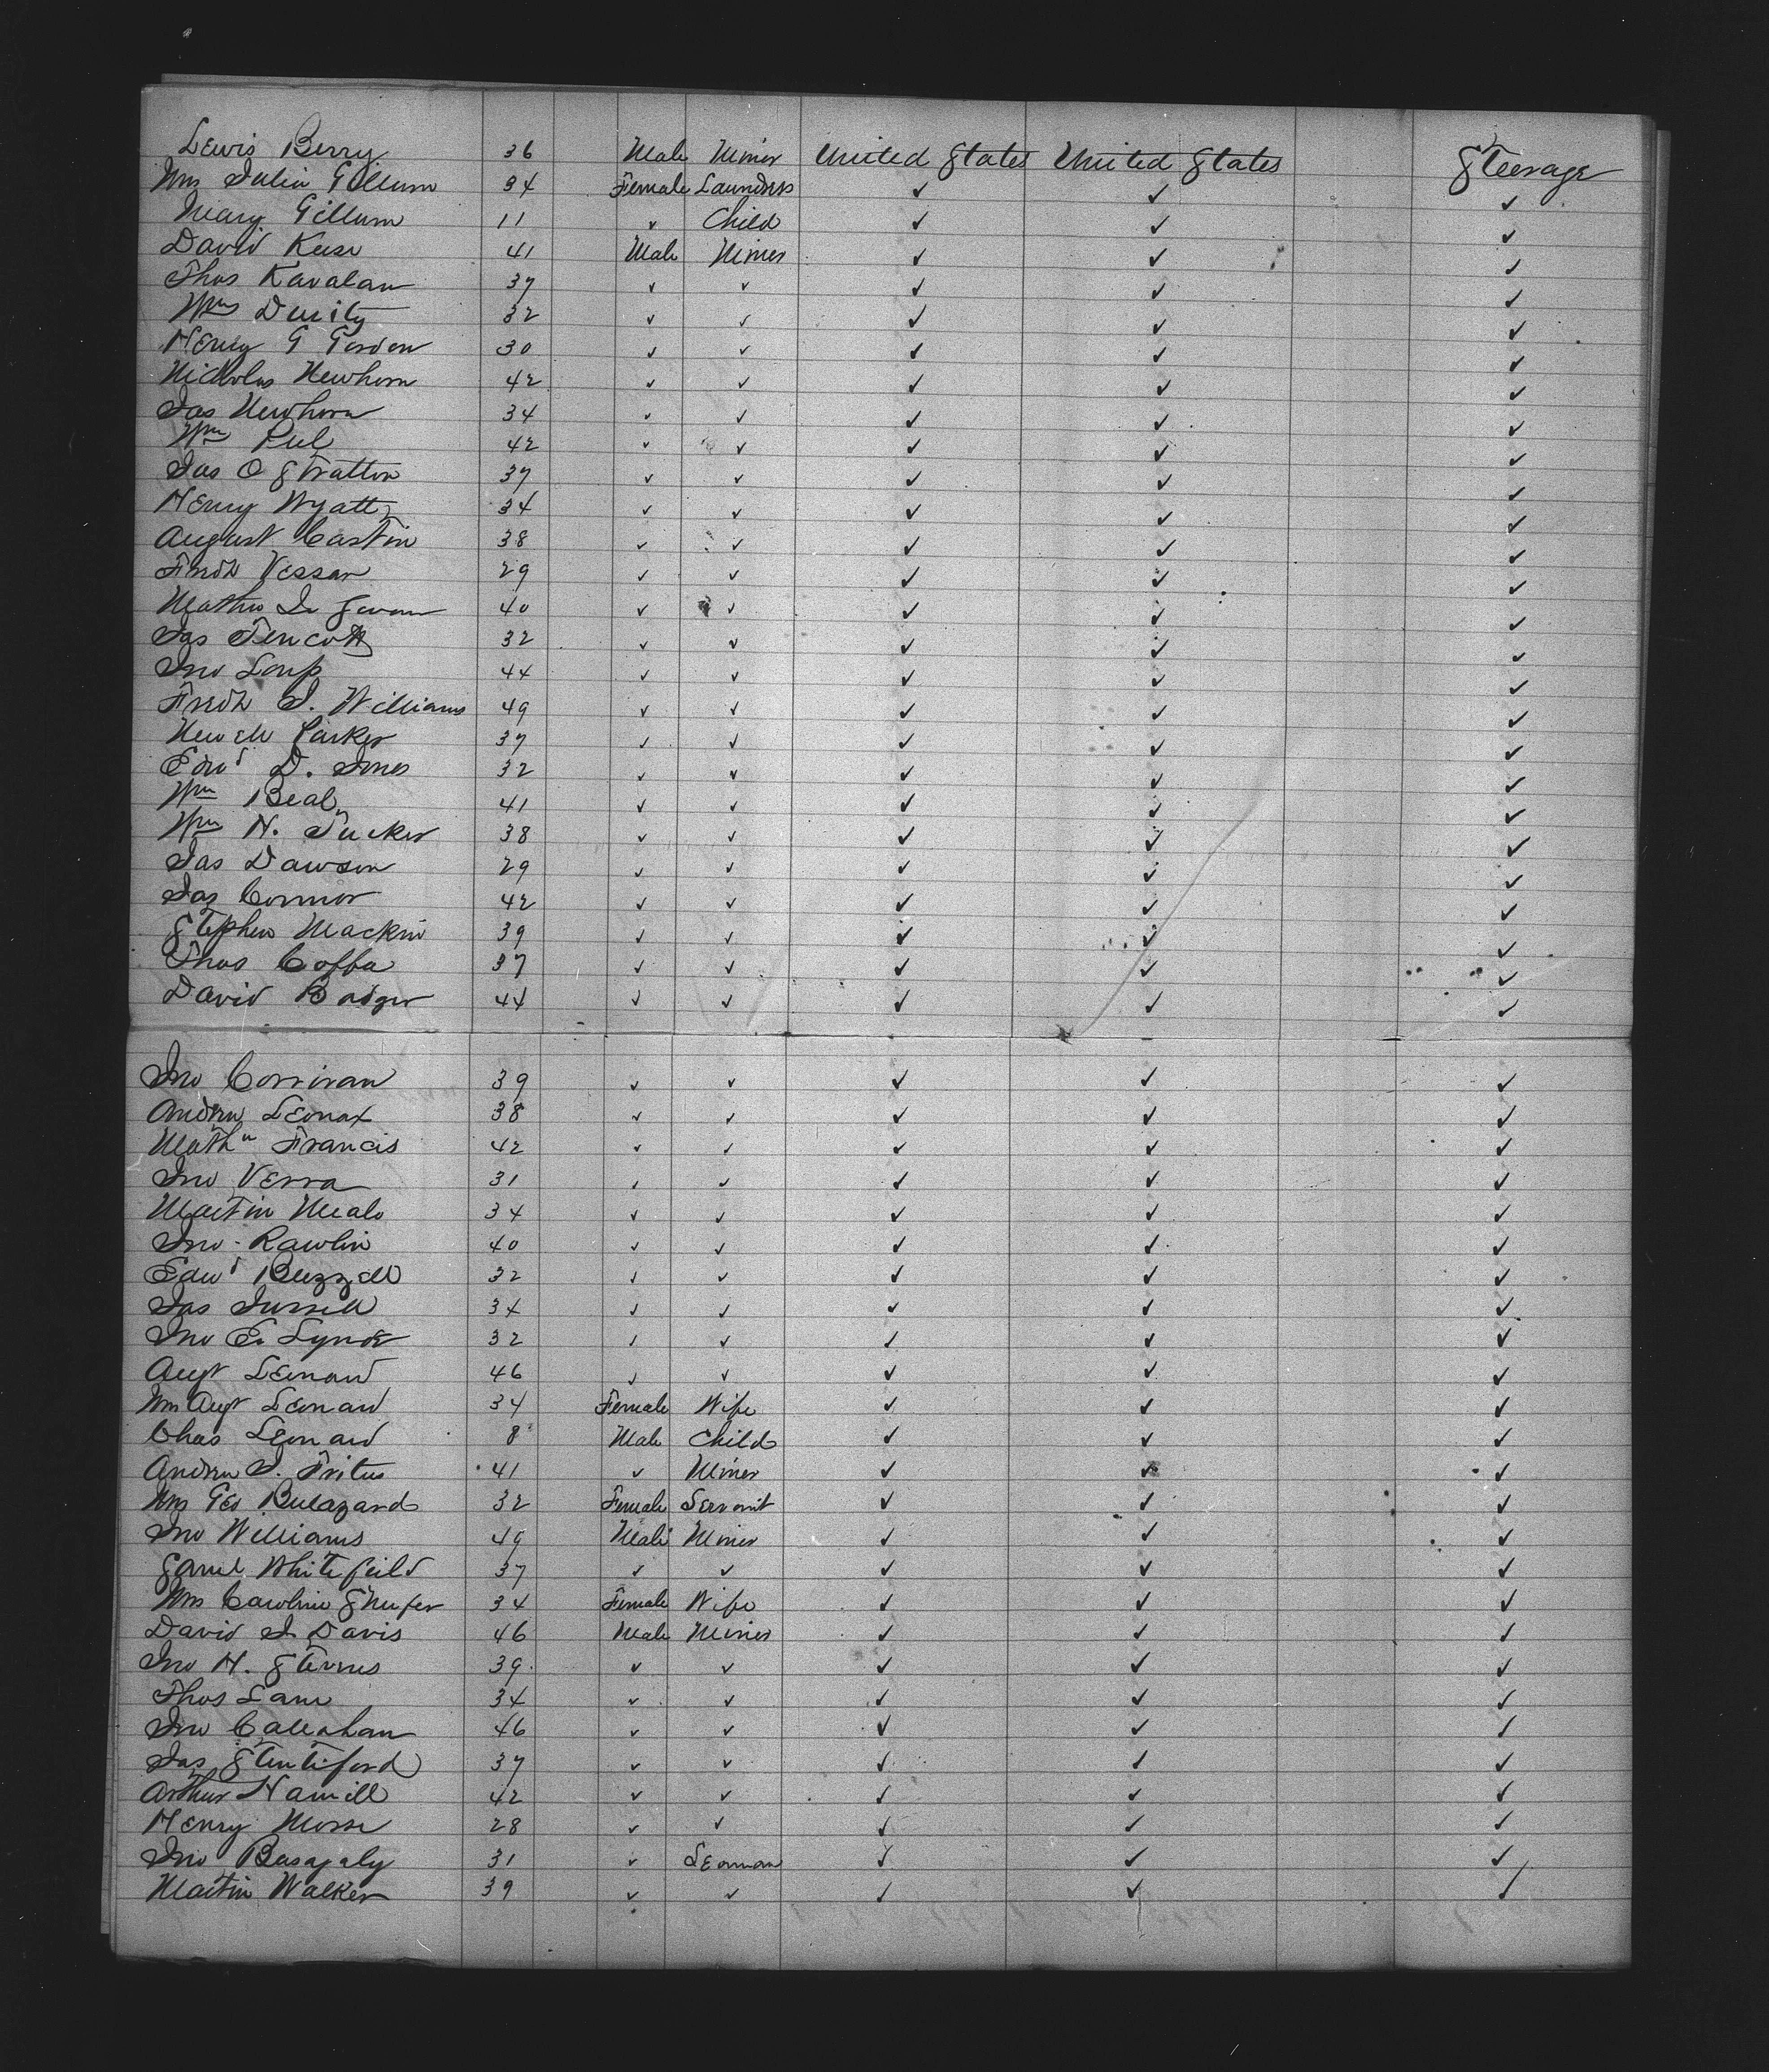 Lewis Berry 36 Male Miner United States United States Steerage
Mrs Julia Gillum 34 Female Laundress ✓ ✓ ✓
Mary Gillum 11 ✓ Child ✓ ✓ ✓
David Keese 41 Male Miner ✓ ✓ ✓
Thos Kavalan 37 ✓ ✓ ✓ ✓ ✓
Wm 32 ✓ ✓ ✓ ✓ ✓
Henry G Gordon 30 ✓ ✓ ✓ ✓ ✓
Nicholas Newhorn 42 ✓ ✓ ✓ ✓ ✓
Jas Newhorn 34 ✓ ✓ ✓ ✓ ✓
Wm Peel 42 ✓ ✓ ✓ ✓ ✓
Jas O Stratton 37 ✓ ✓ ✓ ✓ ✓
Henry Wyatt 34 ✓ ✓ ✓ ✓ ✓
August Castin 38 ✓ ✓ ✓ ✓ ✓
Fredk Vessar 29 ✓ ✓ ✓ ✓ ✓
Mathew 40 ✓ ✓ ✓ ✓ ✓
Jas 32 ✓ ✓ ✓ ✓ ✓
Jno Loup 44 ✓ ✓ ✓ ✓ ✓
Fredk J. Williams 49 ✓ ✓ ✓ ✓ ✓
Newell Parker 37 ✓ ✓ ✓ ✓ ✓
Edwd D. Jones 32 ✓ ✓ ✓ ✓ ✓
Wm Beal 41 ✓ ✓ ✓ ✓ ✓
Wm H. Tucker 38 ✓ ✓ ✓ ✓ ✓
Jas Dawson 29 ✓ ✓ ✓ ✓ ✓
Jas Connor 42 ✓ ✓ ✓ ✓ ✓
Stephen Mackin 39 ✓ ✓ ✓ ✓ ✓
Thos Coffa 37 ✓ ✓ ✓ ✓ ✓
David Badger 44 ✓ ✓ ✓ ✓ ✓
Jno Corrivan 39 ✓ ✓ ✓ ✓ ✓
Andrew Leonax 38 ✓ ✓ ✓ ✓ ✓
Mathw Francis 42 ✓ ✓ ✓ ✓ ✓
Jno Verra 31 ✓ ✓ ✓ ✓ ✓
Martin Mealo 34 ✓ ✓ ✓ ✓ ✓
Jno Rawlin 40 ✓ ✓ ✓ ✓ ✓
Edwd Buzzell 32 ✓ ✓ ✓ ✓ ✓
Jas Jurrell 34 ✓ ✓ ✓ ✓ ✓
Jno E. Lynde 32 ✓ ✓ ✓ ✓ ✓
Augt Leonard 46 ✓ ✓ ✓ ✓ ✓
Mrs Augt Leonard 34 Female Wife ✓ ✓ ✓
Chas Leonard 8 Male Child ✓ ✓ ✓
Andrew J. Fritus 41 ✓ Miner ✓ ✓ ✓
Mrs Geo Bullazard 32 Female Servant ✓ ✓ ✓
Jno Williams 49 Male Miner ✓ ✓ ✓
Saml Whitefeild 37 ✓ ✓ ✓ ✓ ✓
Mrs Caroline Shufer 34 Female Wife ✓ ✓ ✓
David J Davis 46 Male Miner ✓ ✓ ✓
Jno H. Sternes 39 ✓ ✓ ✓ ✓ ✓
Thos Lane 34 ✓ ✓ ✓ ✓ ✓
Jno Callahan 46 ✓ ✓ ✓ ✓ ✓
Jas Stentiford 37 ✓ ✓ ✓ ✓ ✓
Arthur Hamill 42 ✓ ✓ ✓ ✓ ✓
Henry Morse 28 ✓ ✓ ✓ ✓ ✓
Jno Basagaly 31 ✓ Seaman ✓ ✓ ✓
Martin Walker 39 ✓ ✓ ✓ ✓ ✓